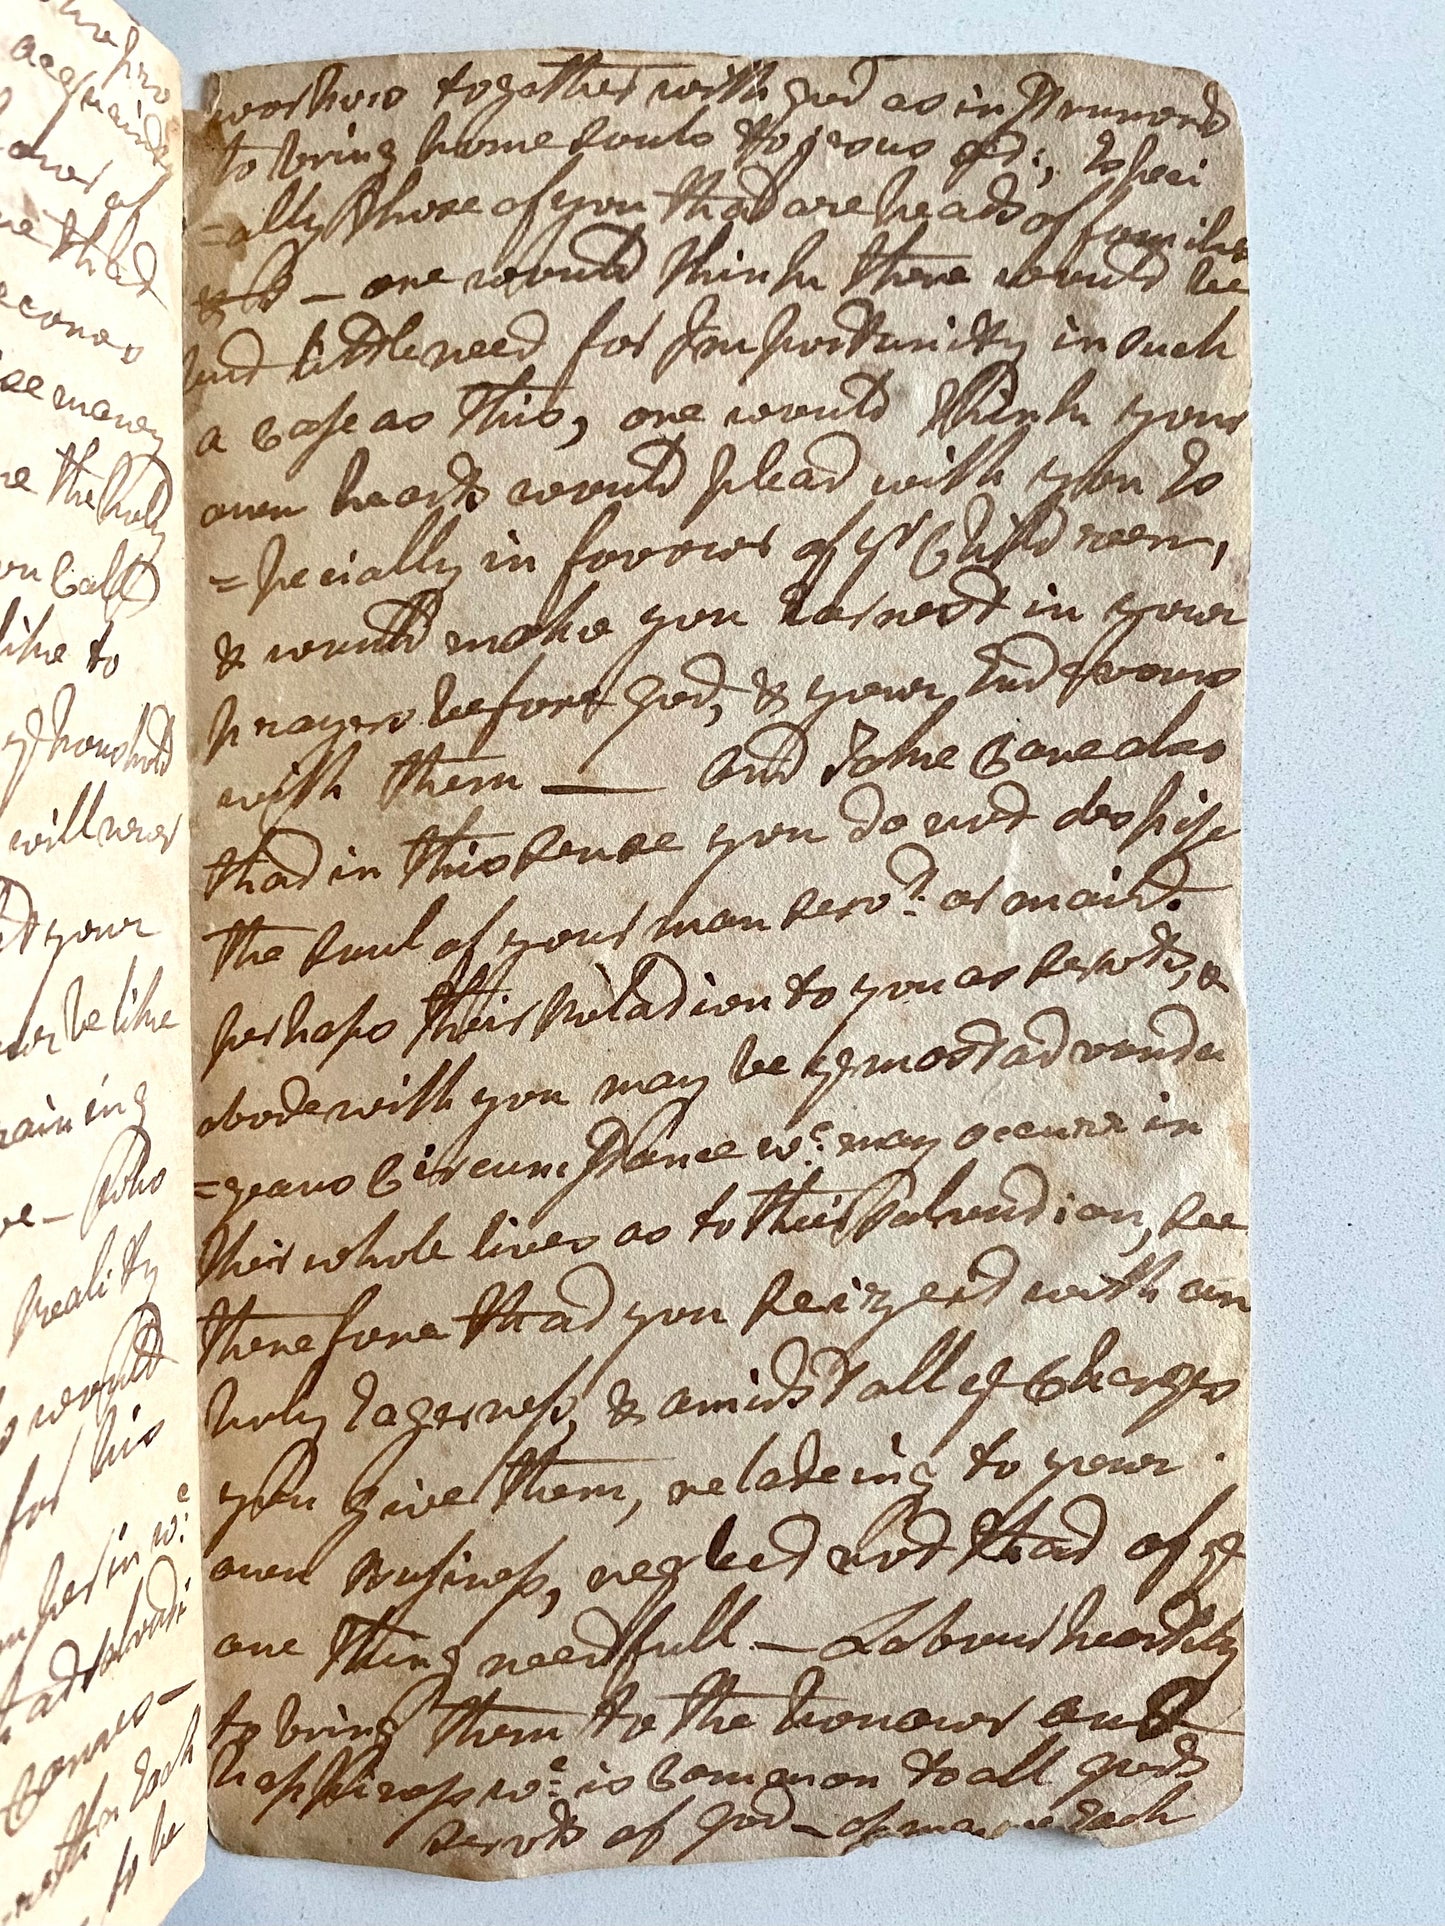 the firo
acquainted
that
become
ise money
re the holy
on Call
like to
ye houshold
will never
your
ever be like
aining
Who
reality
would
for his
in wc
to be
workers together with god as in Strument
to bring home Souls to jesus &c:, Especi
=ally those of you that are heads of families
&c — one would think there would be
but little need for Importunity in such
a Case as this, one would think your
own hearts would plead with you Es
=pecially in favour of yr Childreen,
& would make you Earnest in your
prayers before god, & your Endevours
with them — and Take Care also
that in this sense you do not despise
the soul of your man servt: or maid.
perhaps their Relation to you as servts, &
abode with you may be ye most advanta
=geous Circumstance wc: may occurr in
their whole lives as to their Salvation, see
therefore that you seize it with an
holy Eagerness, & amidst all ye Charges
you give them, relateing to your
own Business, neglect not that of ye
one thing needfull — Labour heartily
to bring them to the honour and
happiness wc: is Common to all gods
servts of god — of